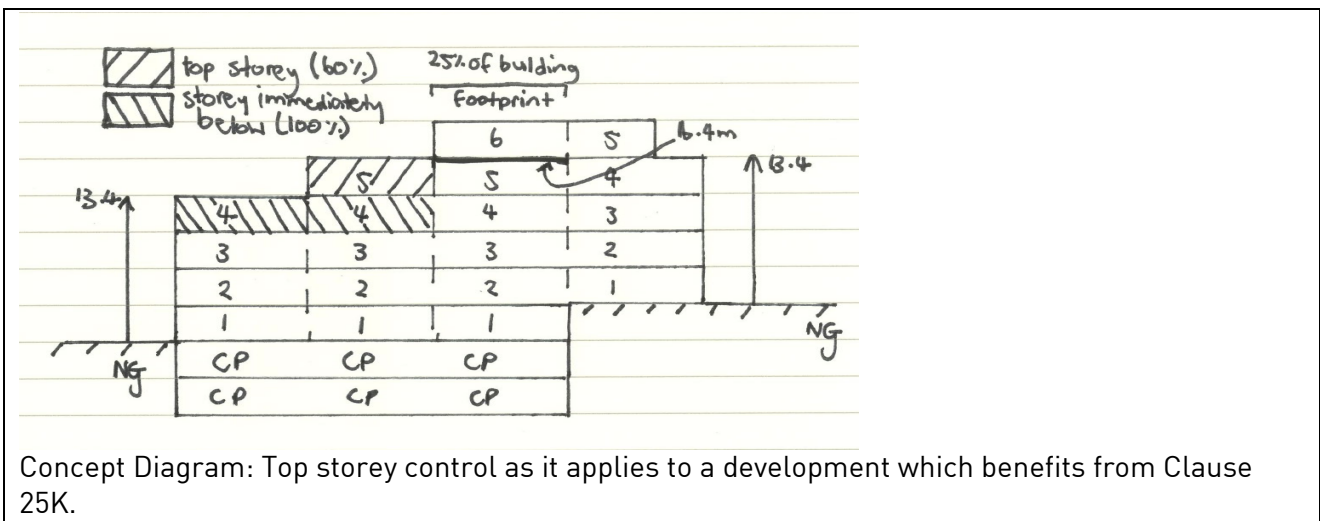 top storey (60%)
storey immediately
below (100%)
25% of bulding
footprint
6 5 16.4m
5 5 4 13.4
13.4 4 4 4 3
3 3 3 2
2 2 2 1
1 1 1
NG
NG CP CP CP
CP CP CP
Concept Diagram: Top storey control as it applies to a development which benefits from Clause
25K.